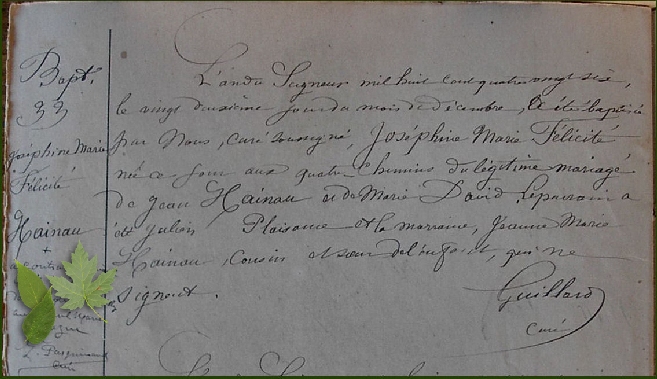 Bapt.
33
Joséphine Marie
Félicité
Hainau
+
L'an du Seigneur mil huit cent quatre vingt six,
le vingt deuxième jour du mois de décembre, a été baptisée
par Nous, curé soussigné, Joséphine Marie Félicité
née ce jour aux quatre Chemins du légitime mariage
de Jean Hainau et de Marie David. Le parrain a
été Julien Plaisance et la marraine, Jeanne Marie
Hainau, cousin et sœur de l'enfant, qui ne
signent.
Guillard
curé